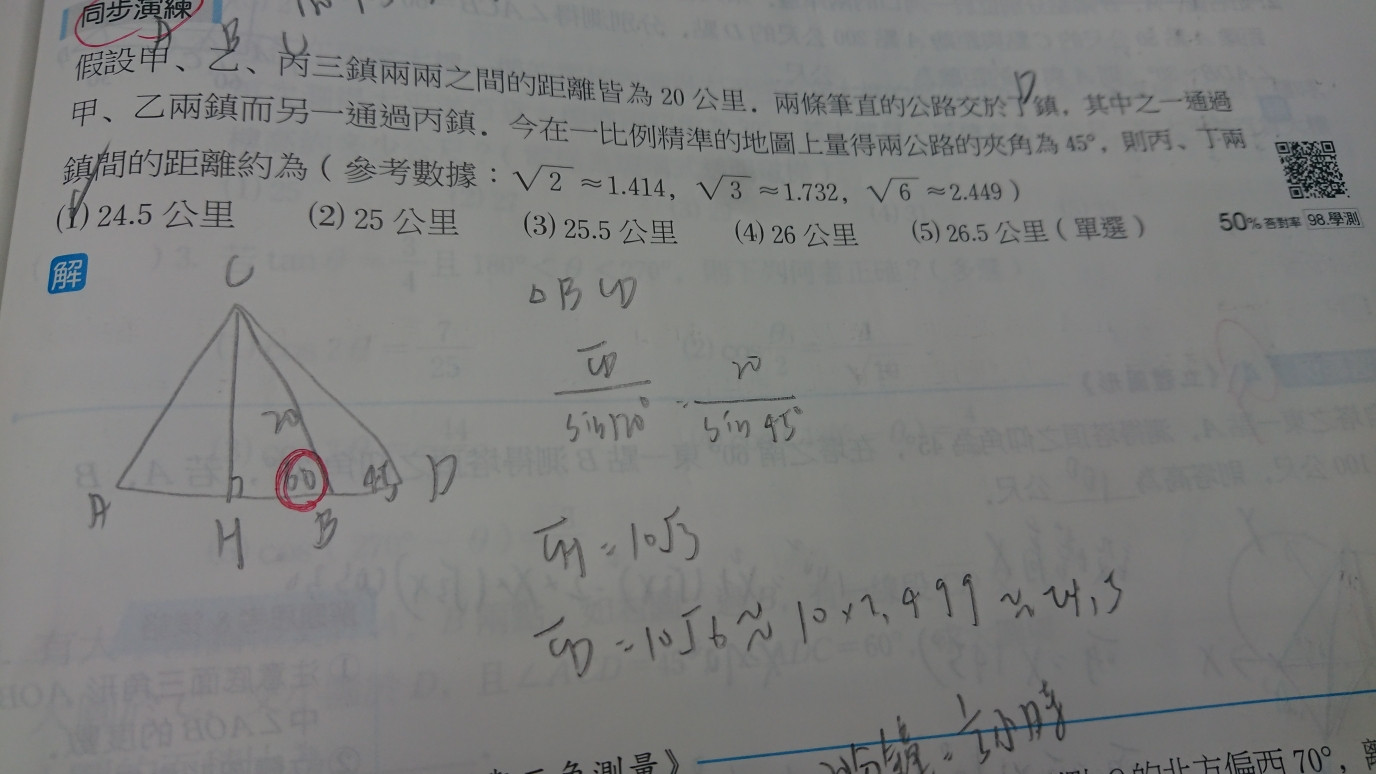 同步演練
A B C
假設甲、乙、丙三鎮兩兩之間的距離皆為 20 公里．兩條筆直的公路交於丁鎮，其中之一通過
D
甲、乙兩鎮而另一通過丙鎮．今在一比例精準的地圖上量得兩公路的夾角為 45°，則丙、丁兩
鎮間的距離約為（參考數據：√2 ≈1.414，√3 ≈1.732，√6 ≈2.449）
(1) 24.5 公里 (2) 25 公里 (3) 25.5 公里 (4) 26 公里 (5) 26.5 公里（單選）
50% 答對率 98.學測
解
C
20
60 45
A H B D
△BCD
CD/sin120° = 20/sin45°
CH = 10√3
CD = 10√6 ≈ 10×2,499 ≈ 24,5
三角測量》
的北方偏西 70°，